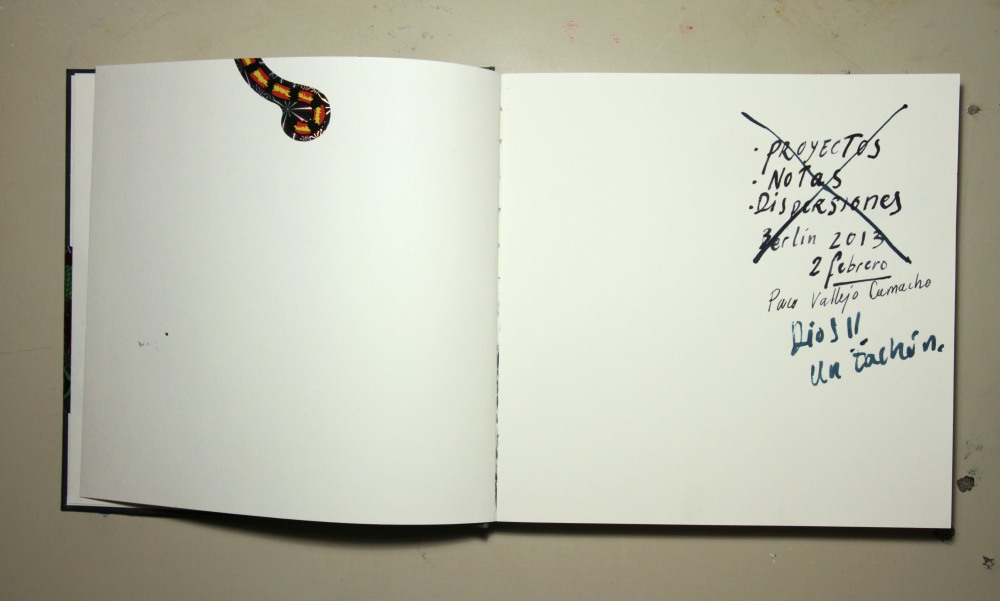 · PROYECTOS
· NOTAS
· Dispersiones
Berlín 2013
2 febrero
Paco Vallejo Camacho
Dios!!
Un tachón.